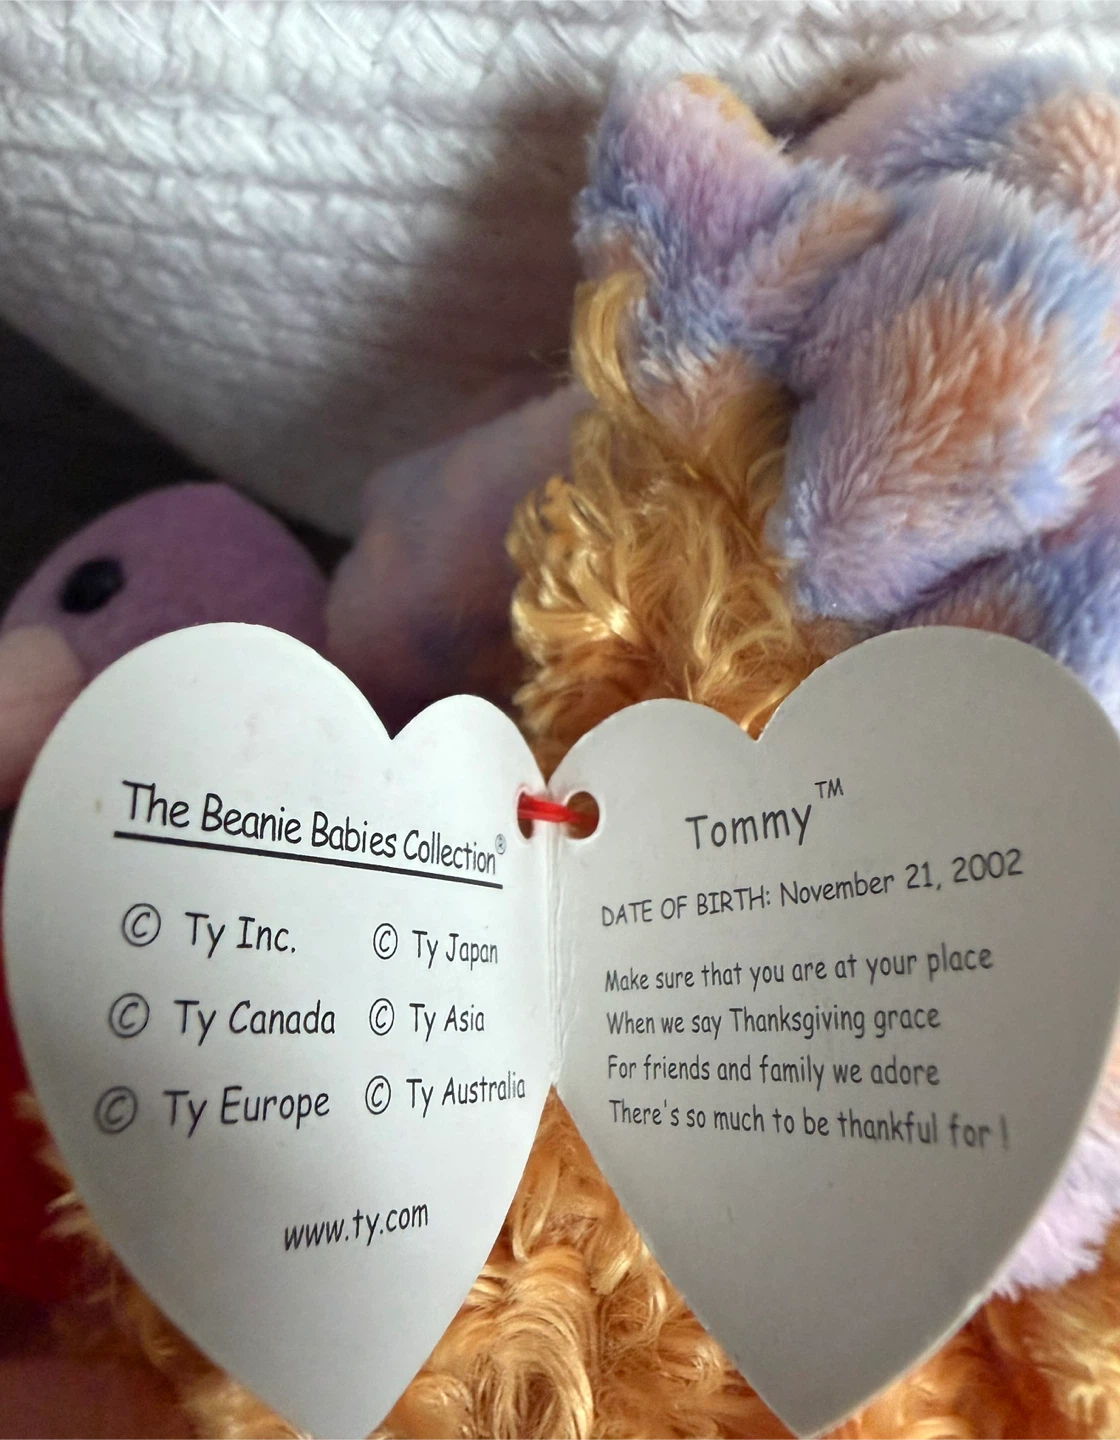 The Beanie Babies Collection®
© Ty Inc.
© Ty Japan
© Ty Canada
© Ty Asia
© Ty Europe
© Ty Australia
www.ty.com
Tommy™
DATE OF BIRTH: November 21, 2002
Make sure that you are at your place
When we say Thanksgiving grace
For friends and family we adore
There's so much to be thankful for !